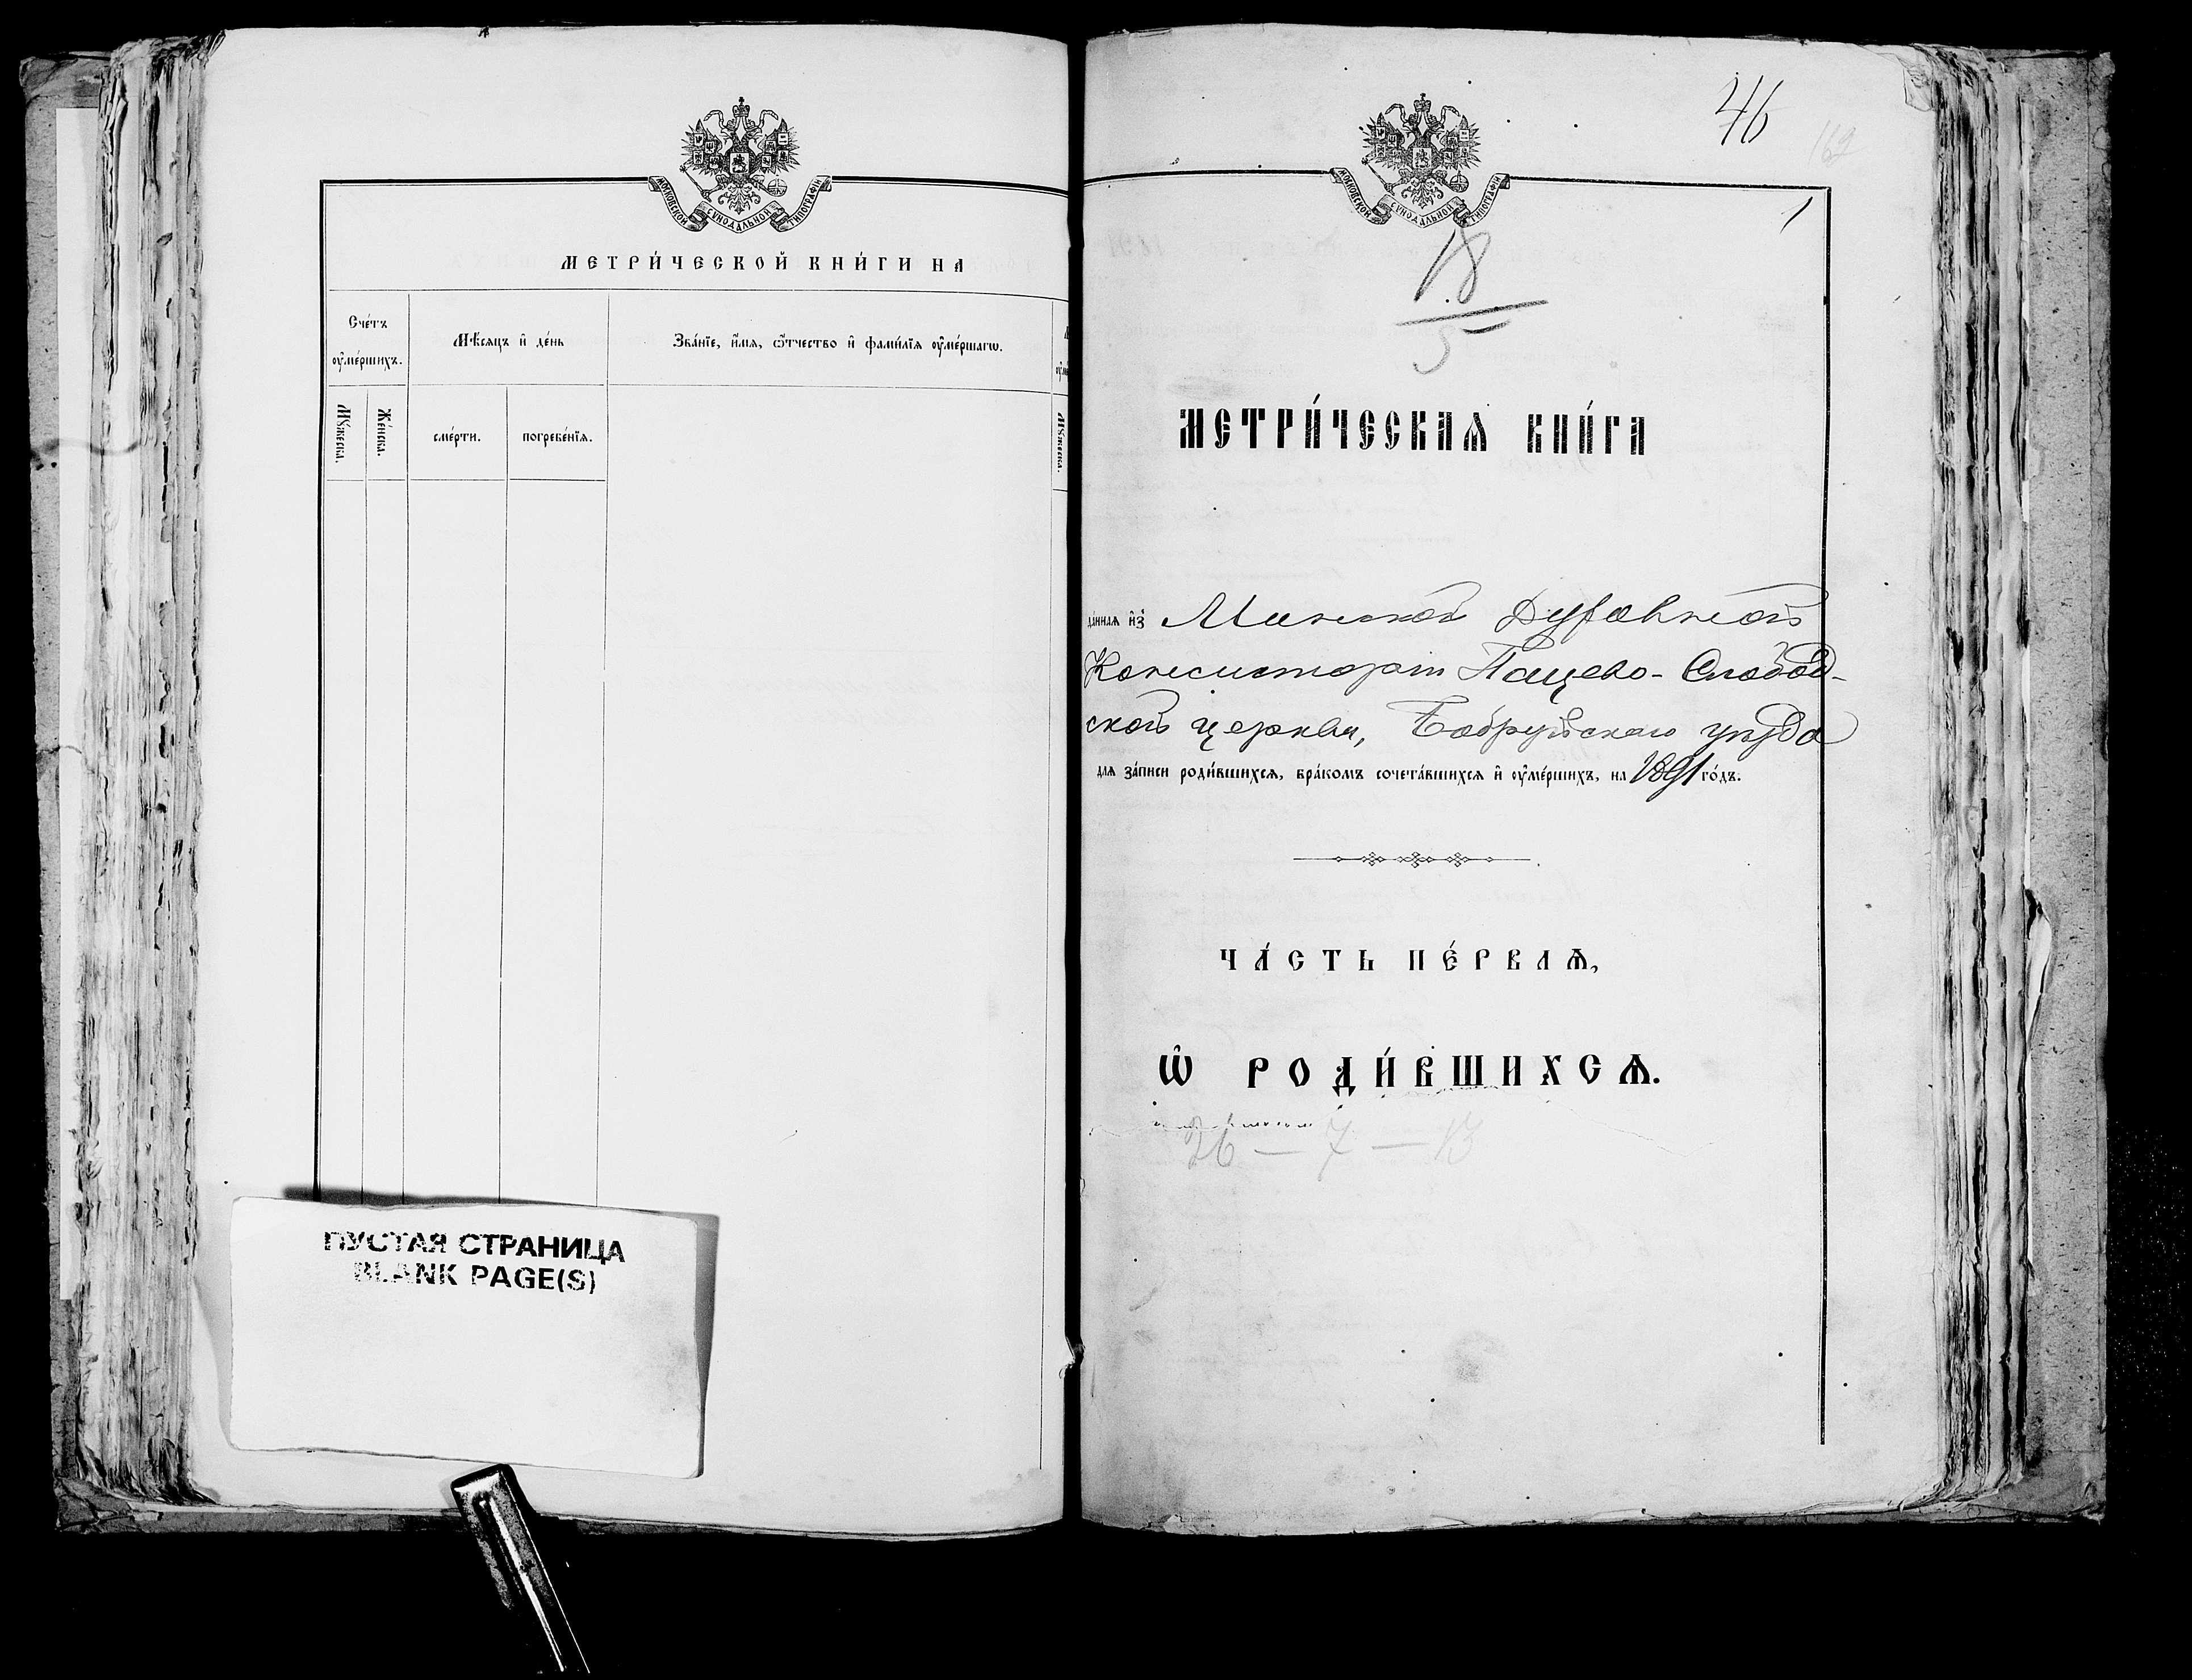 МОСКОВСКОЙ СѴНОДАЛЬНОЙ ТИПОГРАФІИ
МЕТРИ́ЧЕСКОЙ КНИ́ГИ НА
Сче́тъ ᲂу҆ме́ршихъ.
Мѣ́сяцъ и҆ де́нь
Зва́нїе, и҆́мѧ, ѻ҆́тчество и҆ фами́лїѧ ᲂу҆ме́ршагѡ.
Мꙋ́жеска.
Же́нска.
сме́рти.
погребе́нїѧ.
Мꙋ́жеска.
ПУСТАЯ СТРАНИЦА
BLANK PAGE(S)
46
162
МОСКОВСКОЙ СѴНОДАЛЬНОЙ ТИПОГРАФІИ
1
18
5
МЕТРИ́ЧЕСКАѦ КНИ́ГА
да́ннаѧ и҆з̾ Минской Духовной
Консисторіи Пацево-Слобод-
ской церкви, Бобруйскаго уѣзда
длѧ за́писи роди́вшихсѧ, бра́комъ сочета́вшихсѧ и҆ ᲂу҆ме́ршихъ, на 1891 го́дъ.
ЧА́СТЬ ПЕ́РВАѦ,
Ѡ҆ РОДИ́ВШИХСѦ.
26 — 7 — 13